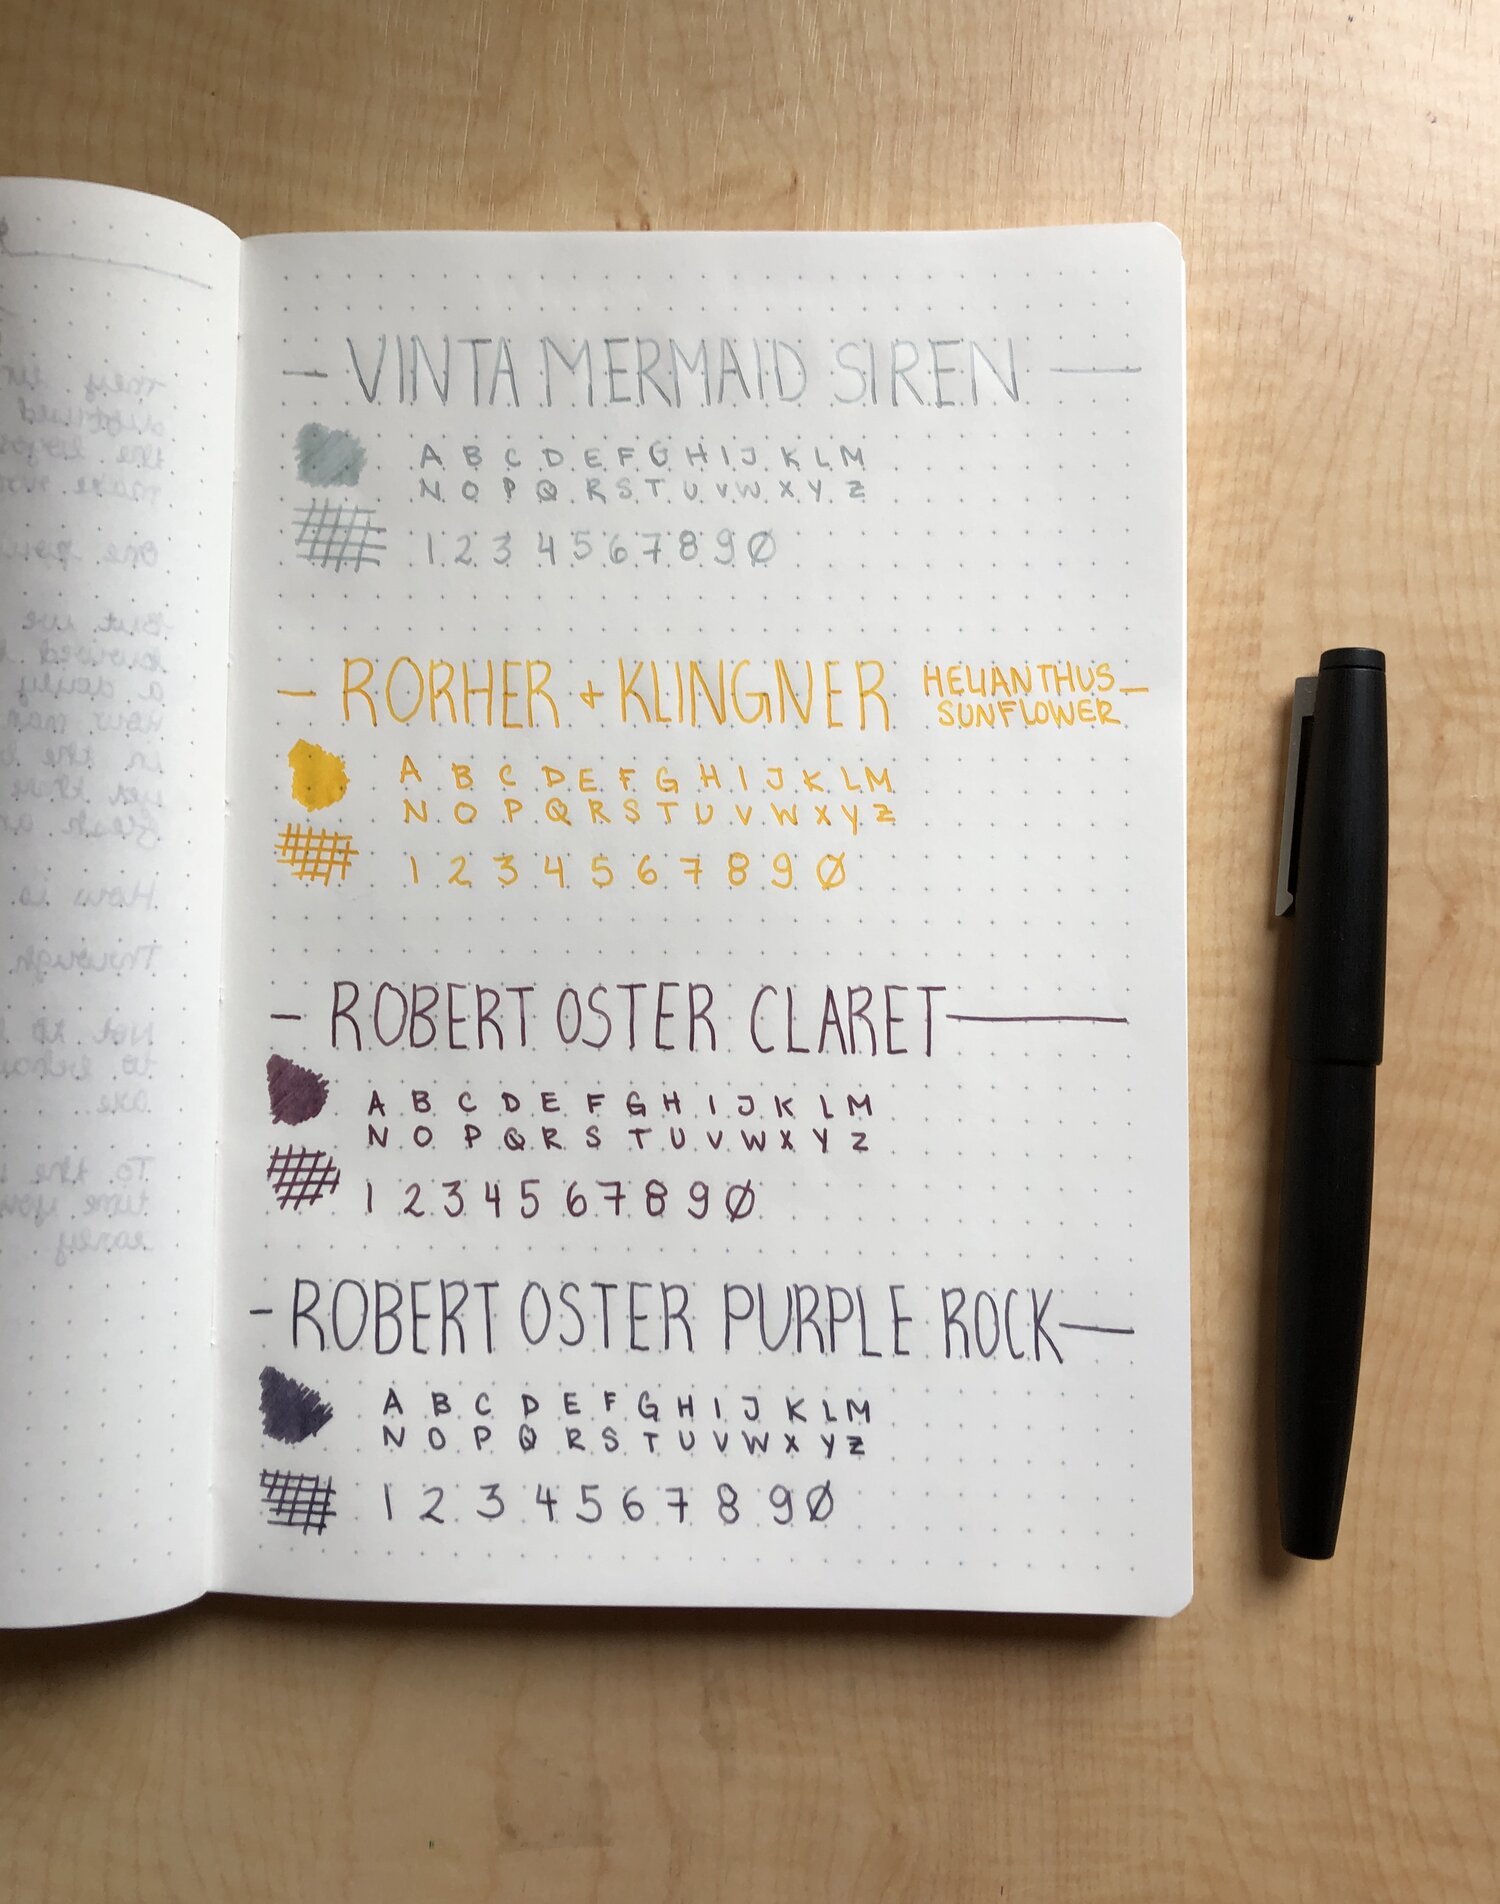 — VINTA MERMAID SIREN —
A B C D E F G H I J K L M
N O P Q R S T U V W X Y Z
1 2 3 4 5 6 7 8 9 0
— RORHER + KLINGNER HELIANTHUS —
SUNFLOWER
A B C D E F G H I J K L M
N O P Q R S T U V W X Y Z
1 2 3 4 5 6 7 8 9 0
— ROBERT OSTER CLARET —
A B C D E F G H I J K L M
N O P Q R S T U V W X Y Z
1 2 3 4 5 6 7 8 9 0
— ROBERT OSTER PURPLE ROCK —
A B C D E F G H I J K L M
N O P Q R S T U V W X Y Z
1 2 3 4 5 6 7 8 9 0